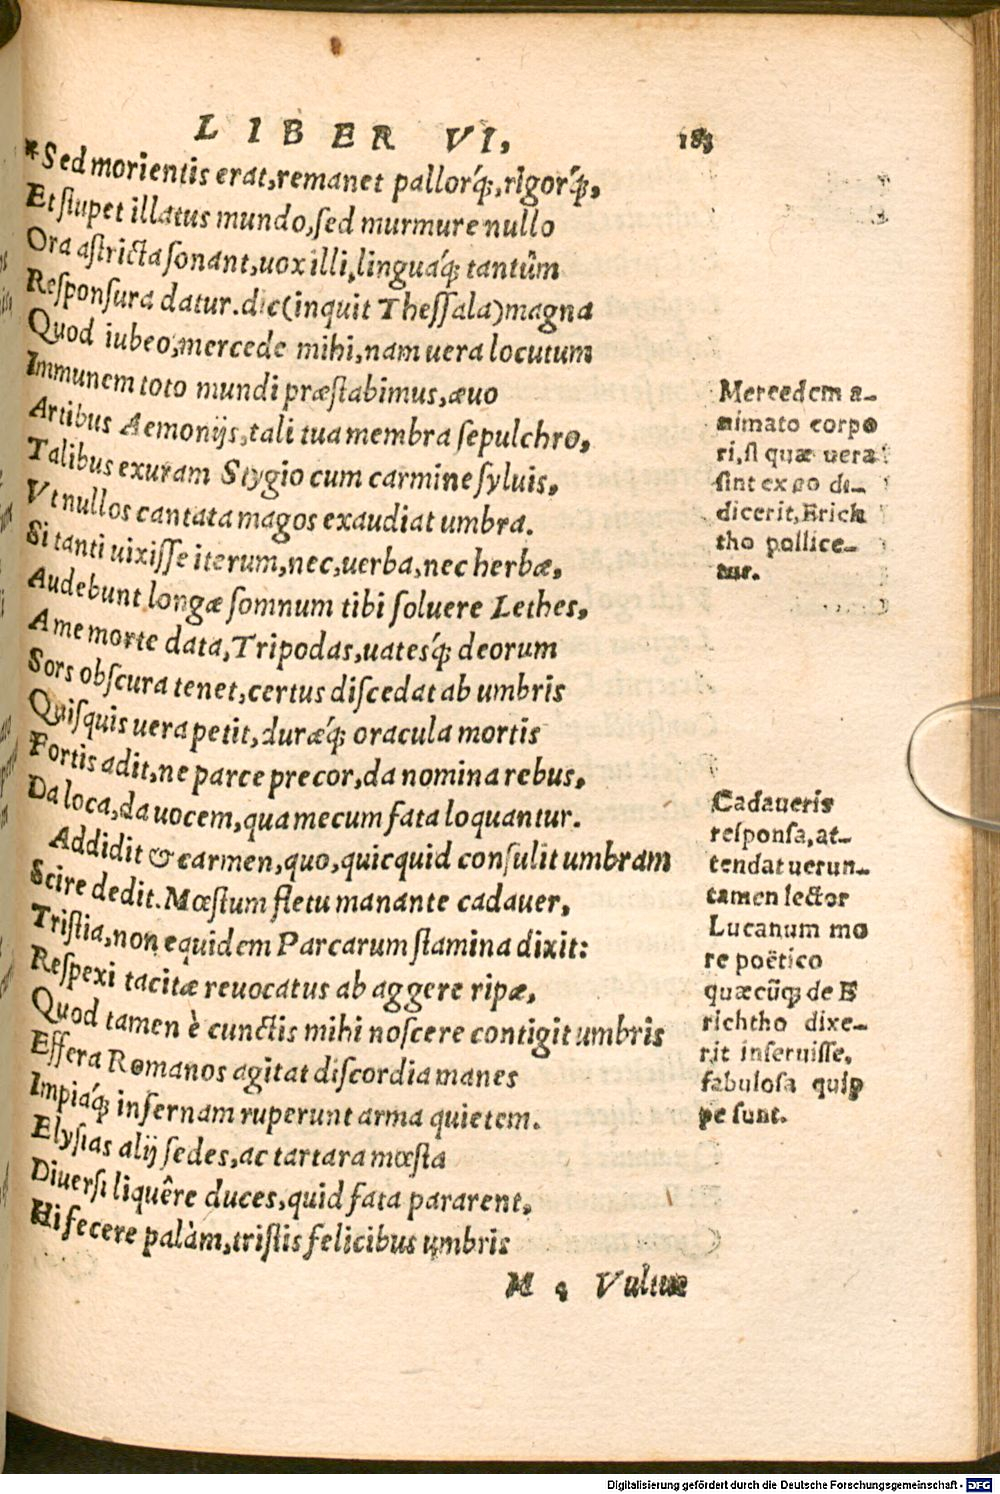 LIBER VI,
183
*Sed morientis erat, remanet pallorq́;, rigorq́;,
Et ſtupet illatus mundo, ſed murmure nullo
Ora aſtricta ſonant, uox illi, linguaq́; tantûm
Reſponſura datur. dic (inquit Theſſala) magna
Quod iubeo, mercede mihi, nam uera locutum
Immunem toto mundi præſtabimus, æuo
Artibus Aemonijs, tali tua membra ſepulchro,
Talibus exuram Stygio cum carmine ſyluis,
Vt nullos cantata magos exaudiat umbra.
Si tanti uixiſſe iterum, nec, uerba, nec herbæ,
Audebunt longæ ſomnum tibi ſoluere Lethes,
A me morte data, Tripodas, uatesq́; deorum
Sors obſcura tenet, certus diſcedat ab umbris
Quiſquis uera petit, duræq́; oracula mortis
Fortis adit, ne parce precor, da nomina rebus,
Da loca, da uocem, qua mecum fata loquantur.
Addidit & carmen, quo, quicquid conſulit umbram
Scire dedit. Mœſtum fletu manante cadauer,
Triſtia, non equidem Parcarum ſtamina dixit:
Reſpexi tacitæ reuocatus ab aggere ripæ,
Quod tamen è cunctis mihi noſcere contigit umbris
Effera Romanos agitat diſcordia manes
Impiaq́; infernam ruperunt arma quietem.
Elyſias alij ſedes, ac tartara mœſta
Diuerſi liquêre duces, quid fata pararent,
Hi fecere palàm, triſtis felicibus umbris
M 4 Vultus
Mercedem a-
nimato corpo
ri, ſi quæ uera
ſint ex eo di-
dicerit, Erich
tho pollice-
tur.
Cadaueris
reſponſa, at-
tendat uerun-
tamen lector
Lucanum mo
re poëtico
quæcūq; de E
richtho dixe-
rit inſeruiſſe,
fabuloſa quip
pe ſunt.
Digitalisierung gefördert durch die Deutsche Forschungsgemeinschaft - DFG